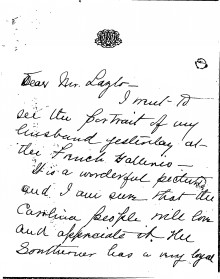 Dear Mr. Laszlo –
I went to
see the portrait of my
husband yesterday at
the French Galleries –
It is a wonderful picture
and I am sure that the
Carolina people will love
and appreciate it. The
Southerner has a very loyal